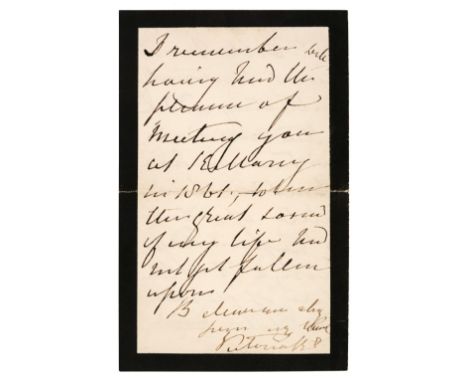 I remember well
having had the
pleasure of
Meeting you
at Killarney
in 1861, when
the great sorrow
of my life had
not yet fallen
upon
Believe me
Victoria R